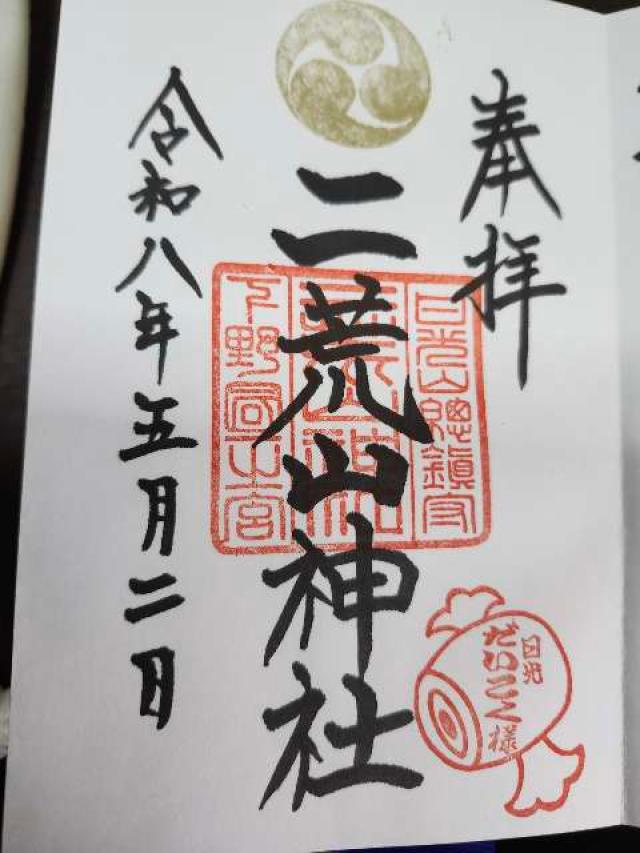 奉拝
二荒山神社
日光山總鎮守
下野國一之宮
日光
だいこく様
令和八年五月二日